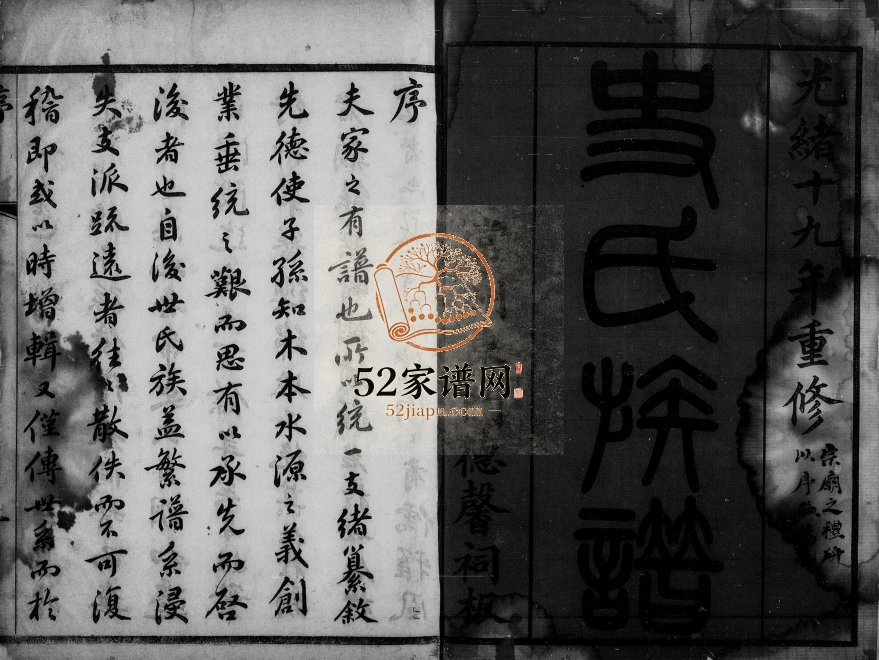 光緒十九年重修
宗廟之禮所
以序
史氏族譜
德馨祠板
序
夫家之有譜也所以統一支緒纂敘
先德使子孫知木本水源之義創
業垂統之艱而思有以承先而啓
後者也自後世氏族益繁譜系浸
失支派疏遠者往〻散佚而不可復
稽即或以時增輯又僅傳世系而於
序
52家谱网
52jiapu.com